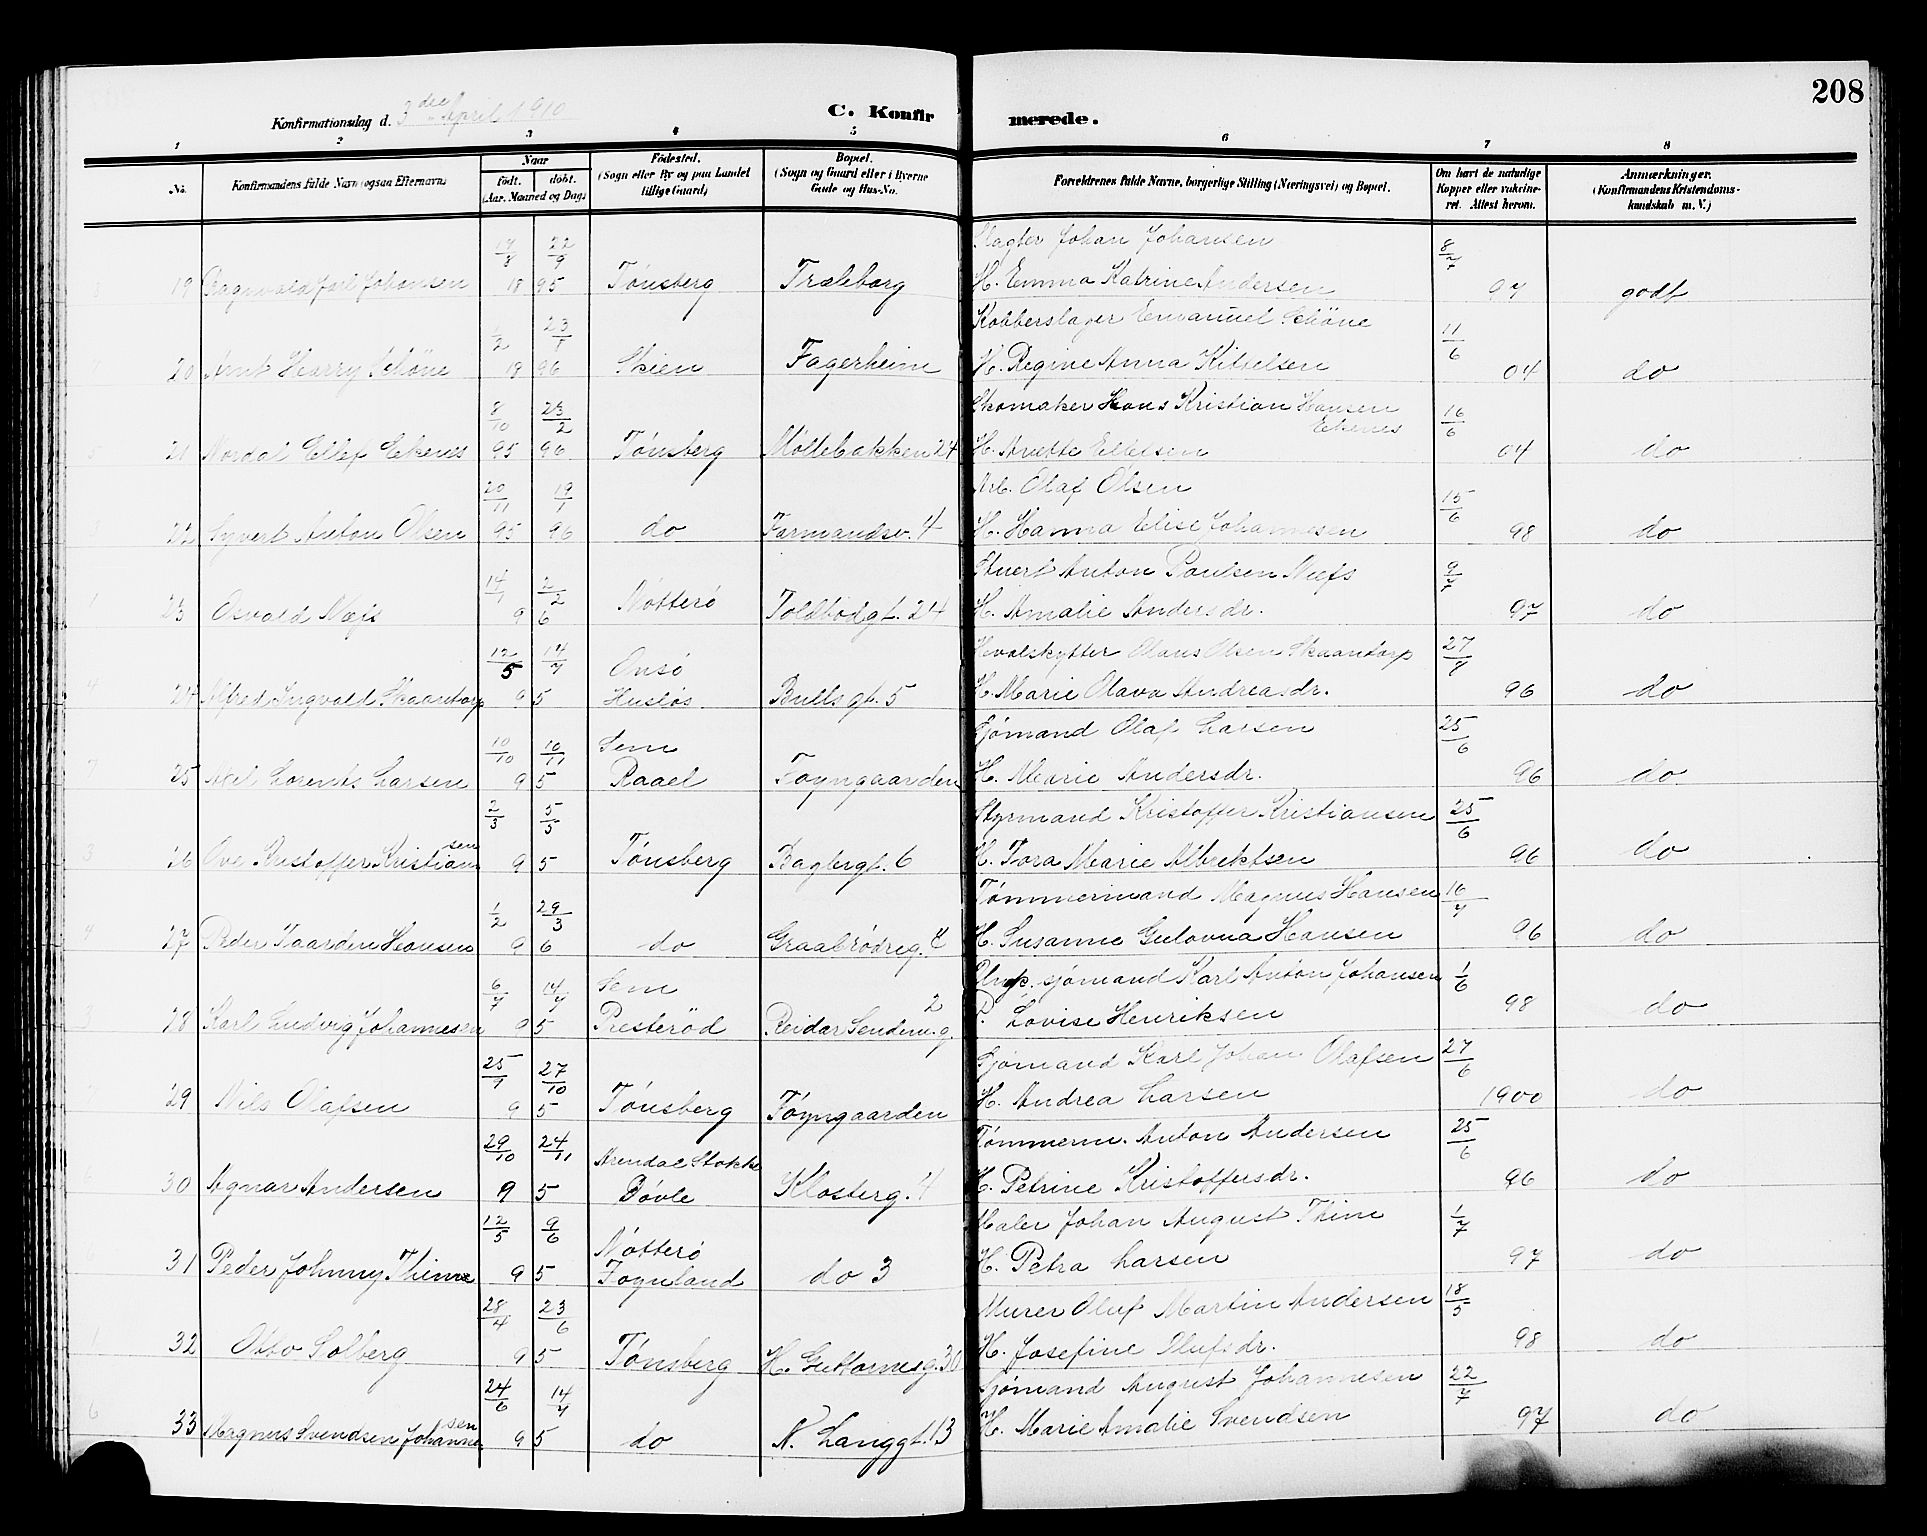 208
Konfirmationsdag d. 3die April 1910
C. Konfirmerede.
1 2 3 4 5 6 7 8
No. Konfirmandens fulde Navn (ogsaa Efternavn) Naar født. døbt. (Aar, Maaned og Dag) Fødested. (Sogn eller By og paa Landet tillige Gaard) Bopæl. (Sogn og Gaard eller i Byerne Gade og Hus-No. Forældrenes fulde Navne, borgerlige Stilling (Næringsvei) og Bopæl. Om havt de naturlige Kopper eller vaksineret. Attest herom. Anmerkninger. (Konfirmandens Kristendomskundskab m. V.)
19/8 22/9 Slagter Johan Johansen 8/7
19 Ragnvald Jarl Johansen 18 95 Tønsberg Træleborg H. Emma Katrine Andersen 97 godt
1/2 23/1 Kobberslager Emanuel Schöne 11/6
20 Arnt Harry Schöne 18 96 Skien Fagerheim H. Regine Anna Kittelsen 04 do
8/10 23/2 Skomaker Hans Kristian Hansen Ekenes 16/6
21 Nordal Ellef Ekenes 95 96 Tønsberg Møllebakken 24 H. Anette Ellefsen 04 do
20/11 19/1 Arb. Olaf Olsen 15/6
22 Syvert Anton Olsen 95 96 do Farmandsv. 4 H. Hanna Elise Johannesen 98 do
14/1 2/2 Stuert Anton Paulsen Næss 9/7
23 Osvald Næss 9 6 Nøtterø Toldbodgt. 24 H. Amalie Andersdr. 97 do
12/5 14/7 Onsø Hvalskytter Olaus Olsen Skaantorp 27/7
24 Alfred Ingvald Skaantorp 9 5 Husløs Bulls gt. 5 H. Marie Olava Andreasdr. 96 do
10/10 10/11 Sem Sjømand Olaf Larsen 25/6
25 Axel Lorents Larsen 9 5 Raael Føyngaarden H. Marie Andersdr. 96 do
2/3 5/5 Styrmand Kristoffer Kristiansen 25/6
26 Ove Kristoffer Kristiansen 9 5 Tønsberg Baglergt. 6 H. Tora Marie Albrektsen 96 do
1/2 29/3 Tømmermand Magnus Hansen 16/7
27 Peder Hansen 9 6 do Graabrødreg. H. Susanne Gulovna Hansen 96 do
6/7 14/7 Sem sjømand Karl Anton Johansen 1/6
28 Karl Ludvig Johannesen 9 5 Presterød Reidar Sendem.g. 2 Lovise Henriksen 98 do
25/7 27/10 Sjømand Karl Johan Olafsen 27/6
29 Nils Olafsen 9 5 Tønsberg Føyngaarden H. Andrea Larsen 1900 do
29/10 24/11 Arendal Stokke Tømmerm. Anton Andersen 25/6
30 Agnar Andersen 9 5 Bøvle Klosterg. 4 H. Petrine Kristoffersdr. 96 do
12/5 9/6 Nøtterø Maler Johan August Thime 1/7
31 Peder Johnny Thime 9 5 Føynland do 3 H. Petra Larsen 97 do
28/4 23/6 Murer Oluf Martin Andersen 18/5
32 Otto Solberg 9 5 Tønsberg H. Guttormsg. 30 H. Josefine Olufsdr. 98 do
24/6 14/7 Sjømand August Johannesen 22/7
33 Magnus Svendsen Johannesen 9 5 do N. Langgt. 13 H. Marie Amalie Svendsen 97 do